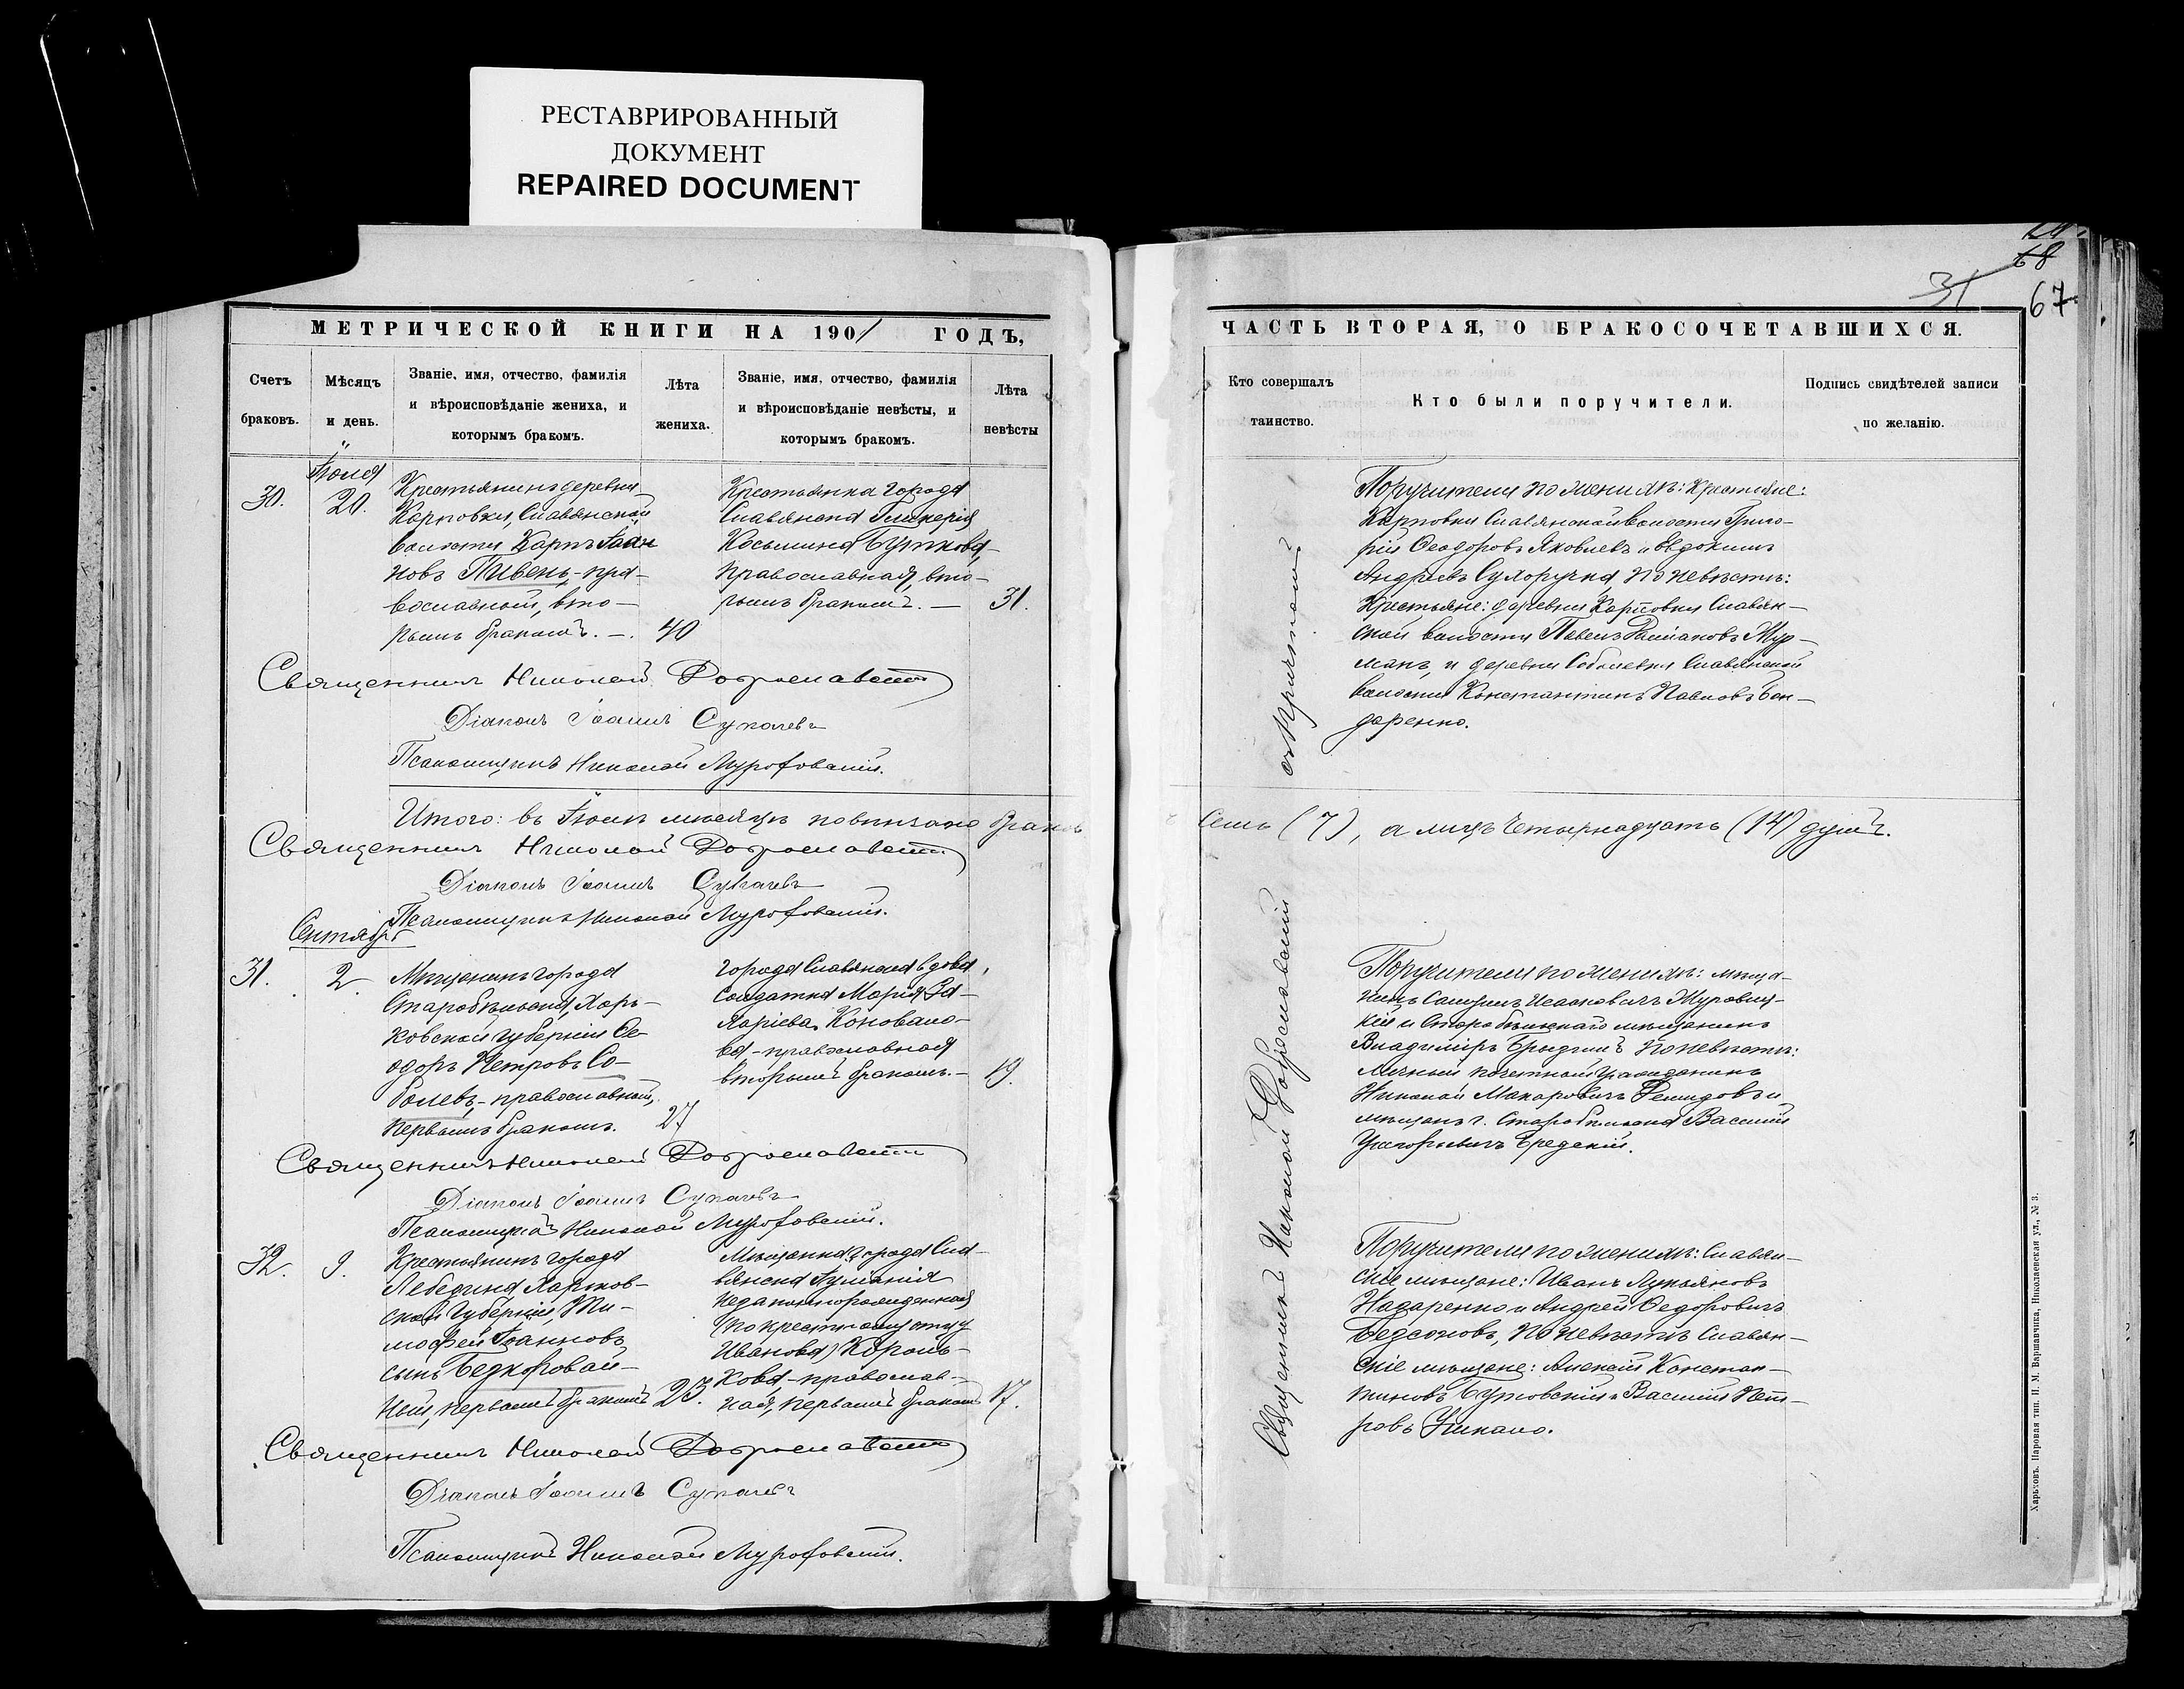 РЕСТАВРИРОВАННЫЙ
ДОКУМЕНТ
REPAIRED DOCUMENT
МЕТРИЧЕСКОЙ КНИГИ НА 1901 ГОДЪ,
Счетъ браковъ.
Мѣсяцъ и день.
Званіе, имя, отчество, фамилія
и вѣроисповѣданіе жениха, и
которымъ бракомъ.
Лѣта
жениха.
Званіе, имя, отчество, фамилія
и вѣроисповѣданіе невѣсты, и
которымъ бракомъ.
Лѣта
невѣсты
Іюля
30.
20.
Крестьянинъ деревни
Карповки, Славянской
волости Карпъ Іоан
новъ Пивень, - пра-
вославный, вто-
рымъ бракомъ. -.
40
Крестьянка города
Славянска Гликерія
Косьмина Буткова,-
православная, вто-
рымъ бракомъ. -
31.
Священникъ Николай Доброславскій
Діаконъ Іоаннъ Сукачевъ
Псаломщикъ Николай
Итого: въ Іюлѣ мѣсяцѣ повѣнчано браковъ
Священникъ Николай Доброславскій
Діаконъ Іоаннъ Сукачевъ
Псаломщикъ Николай
Сентябрь
31.
2.
Мѣщанинъ города
Старобѣльска, Харь-
ковской губерніи Ѳе-
одоръ Петровъ Со-
болевъ, - православный,
первымъ бракомъ.
27
города Славянска вдова,
солдатка Марія За-
харіева Коновало-
ва - православная
вторымъ бракомъ. -
19.
Священникъ Николай Доброславскій
Діаконъ Іоаннъ Сукачевъ
Псаломщикъ Николай
32.
9.
Крестьянинъ города
Лебедина Харьков-
ской губерніи, Ти-
мофей Іоанновъ
сынъ Безкоровай-
ный, первымъ бракомъ
23.
Мѣщанка города Сла-
вянска Іуліанія
незаконнорожденная
(по крестному отцу
Иванова) Король-
кова, - православ-
ная, первымъ бракомъ
17.
Священникъ Николай Доброславскій
Діаконъ Іоаннъ Сукачевъ
Псаломщикъ Николай
68
31
67
ЧАСТЬ ВТОРАЯ, О БРАКОСОЧЕТАВШИХСЯ.
Кто совершалъ
таинство.
Кто были поручители.
Подпись свидѣтелей записи
по желанію.
Поручители по женихѣ: крестьяне:
Карповки Славянской волости Григо-
рій Ѳеодоровъ Яковлевъ и Евдокимъ
Андреевъ Сухоручка, по невѣстѣ:
Крестьяне: деревни Карповки Славян-
ской волости Павелъ Жур-
манъ, и деревни Соболевки Славянской
волости Константинъ Павловъ Бон-
даренко.
Семь (7), а лицъ четырнадцать (14) душъ.
Поручители по женихѣ: мѣща-
нинъ Самуилъ Исааковичъ Журавиц-
кій и Старобѣльскаго мѣщанинъ
Владиміръ по невѣстѣ:
личный почетный гражданинъ
Николай Макаровичъ Демидовъ и
мѣщан. г. Старобѣльска Василій
Григорьевичъ Бредскій.
Поручители по женихѣ: Славян-
скіе мѣщане: Иванъ Лукьяновъ
Назаренко и Андрей Ѳедоровичъ
по невѣстѣ Славян-
скіе мѣщане: Алексѣй Констан-
тиновъ Бутовскій и Василій Пет-
ровъ
Священникъ Николай Доброславскій
съ причтомъ
Харьковъ. Паровая тип. И. М. Варшавчика, Николаевская ул., № 3.